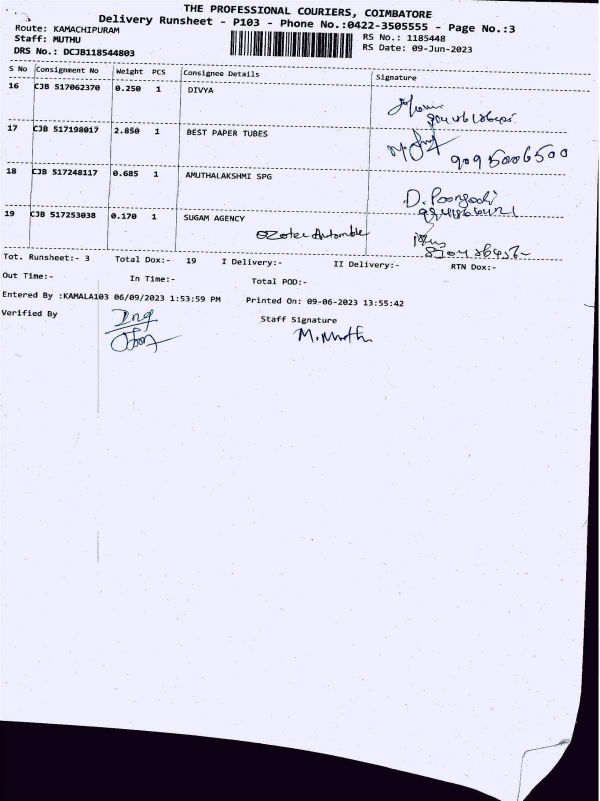 THE PROFESSIONAL COURIERS, COIMBATORE
Delivery Runsheet - P103 - Phone No.:0422-3505555 - Page No.:3
Route: KAMACHIPURAM
Staff: MUTHU
DRS No.: DCJB118544803
RS No.: 1185448
RS Date: 09-Jun-2023
S No Consignment No Weight PCS Consignee Details Signature
16 CJB 517062370 0.250 1 DIVYA
17 CJB 517198017 2.850 1 BEST PAPER TUBES
9095006500
18 CJB 517248117 0.685 1 AMUTHALAKSHMI SPG
D. Poongodi
19 CJB 517253038 0.170 1 SUGAM AGENCY
Tot. Runsheet:- 3 Total Dox:- 19 I Delivery:- II Delivery:- RTN Dox:-
Out Time:- In Time:- Total POD:-
Entered By :KAMALA103 06/09/2023 1:53:59 PM Printed On: 09-06-2023 13:55:42
Verified By Staff Signature
M. Muthu